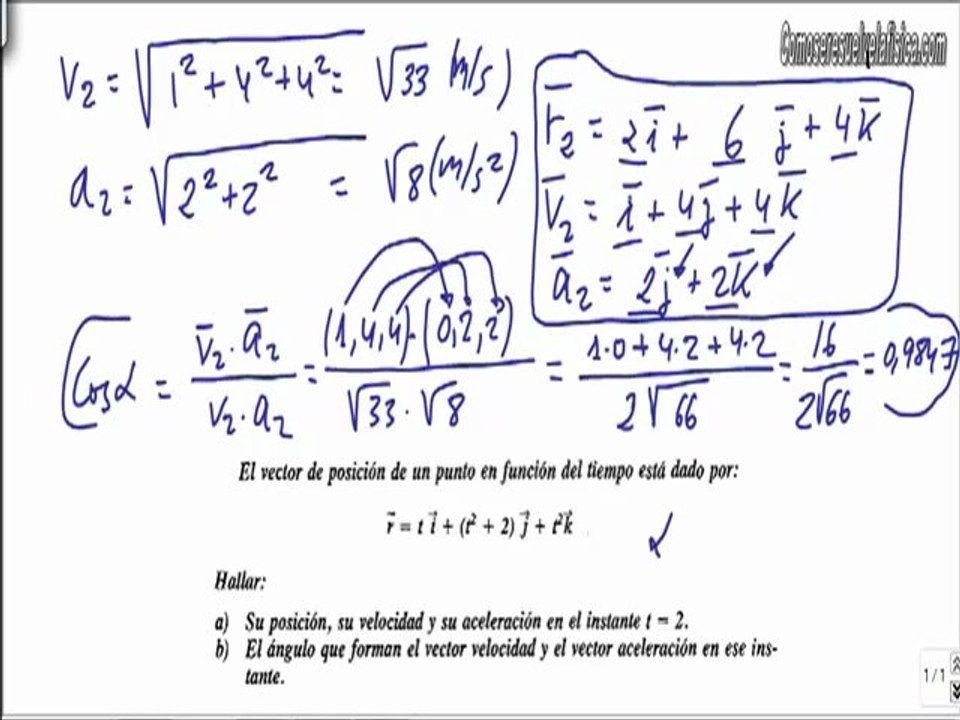 Comoseresuelvelafisica.com
v₂ = √(1² + 4² + 4²) = √33 (m/s)
a₂ = √(2² + 2²) = √8 (m/s²)
r̄₂ = 2ī + 6 j̄ + 4k̄
v̄₂ = ī + 4j̄ + 4k̄
ā₂ = 2j̄ + 2k̄
Cosα = (v̄₂ · ā₂)/(v₂ · a₂) = ((1,4,4)·(0,2,2))/(√33 · √8) = (1·0 + 4·2 + 4·2)/(2√66) = 16/(2√66) = 0,9847
El vector de posición de un punto en función del tiempo está dado por:
r⃗ = t i⃗ + (t² + 2) j⃗ + t²k⃗
α
Hallar:
a) Su posición, su velocidad y su aceleración en el instante t = 2.
b) El ángulo que forman el vector velocidad y el vector aceleración en ese ins-
tante.
1/1